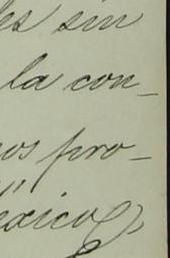 es sin
la con-
os pro-
éxico,